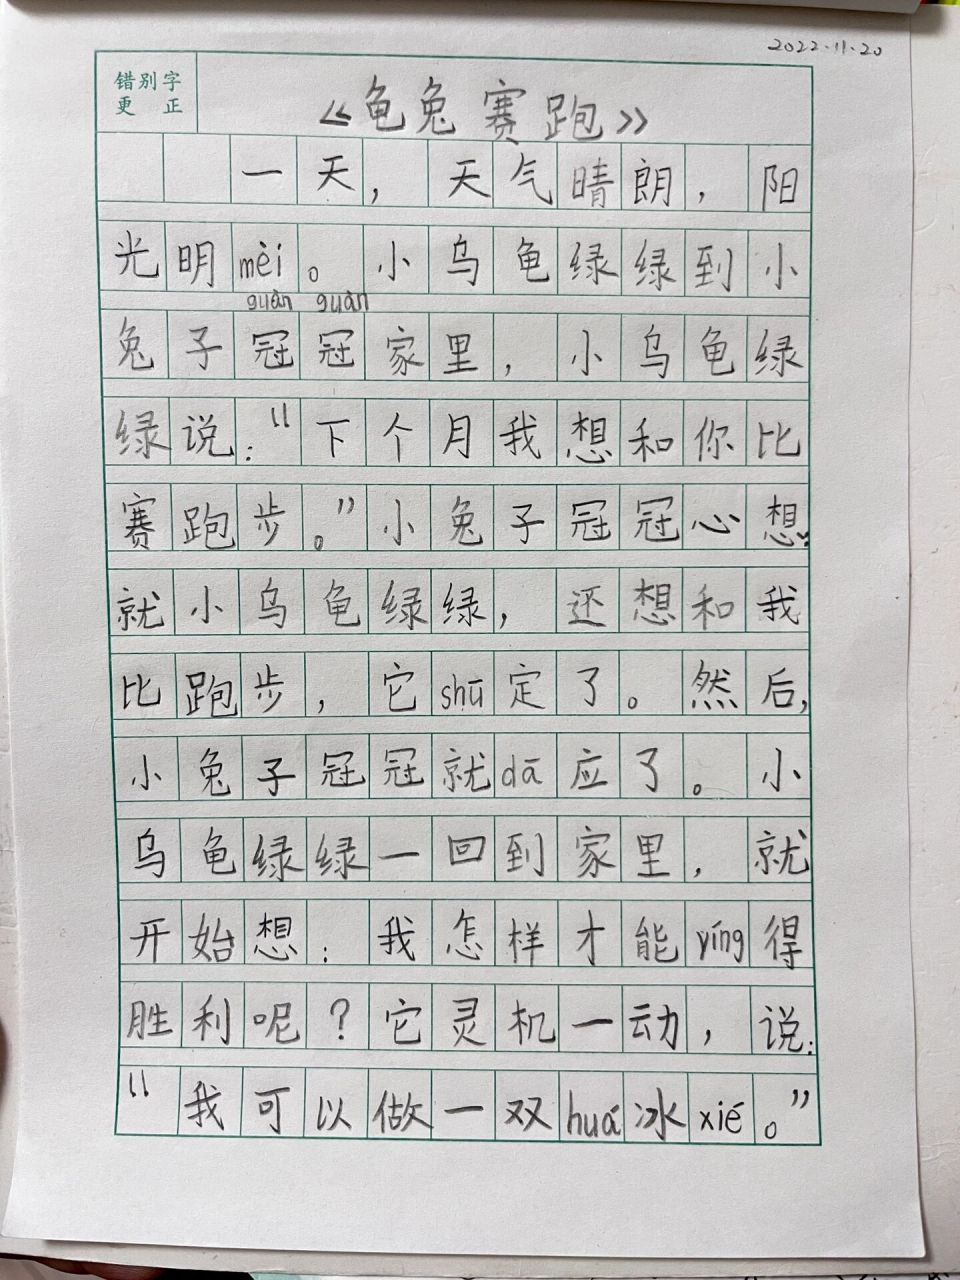 2022.11.20
错别字
更 正
《龟兔赛跑》
一天，天气晴朗，阳
光明mèi。小乌龟绿绿到小
guàn guàn
兔子冠冠家里，小乌龟绿
绿说：“下个月我想和你比
赛跑步。”小兔子冠冠心想：
就小乌龟绿绿，还想和我
比跑步，它shū定了。然后，
小兔子冠冠就dā应了。小
乌龟绿绿一回到家里，就
开始想：我怎样才能yíng得
胜利呢？它灵机一动，说：
“我可以做一双huá冰xié。”